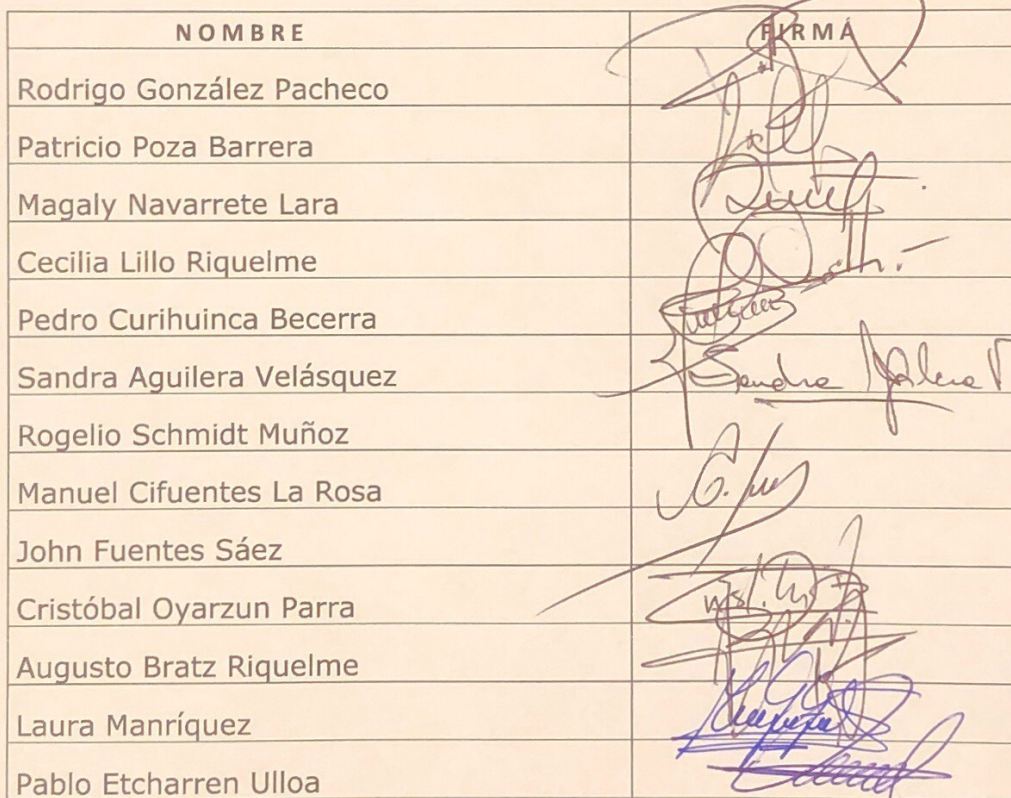 NOMBRE FIRMA
Rodrigo González Pacheco
Patricio Poza Barrera
Magaly Navarrete Lara
Cecilia Lillo Riquelme
Pedro Curihuinca Becerra
Sandra Aguilera Velásquez Sandra
Rogelio Schmidt Muñoz
Manuel Cifuentes La Rosa
John Fuentes Sáez
Cristóbal Oyarzun Parra
Augusto Bratz Riquelme
Laura Manríquez
Pablo Etcharren Ulloa